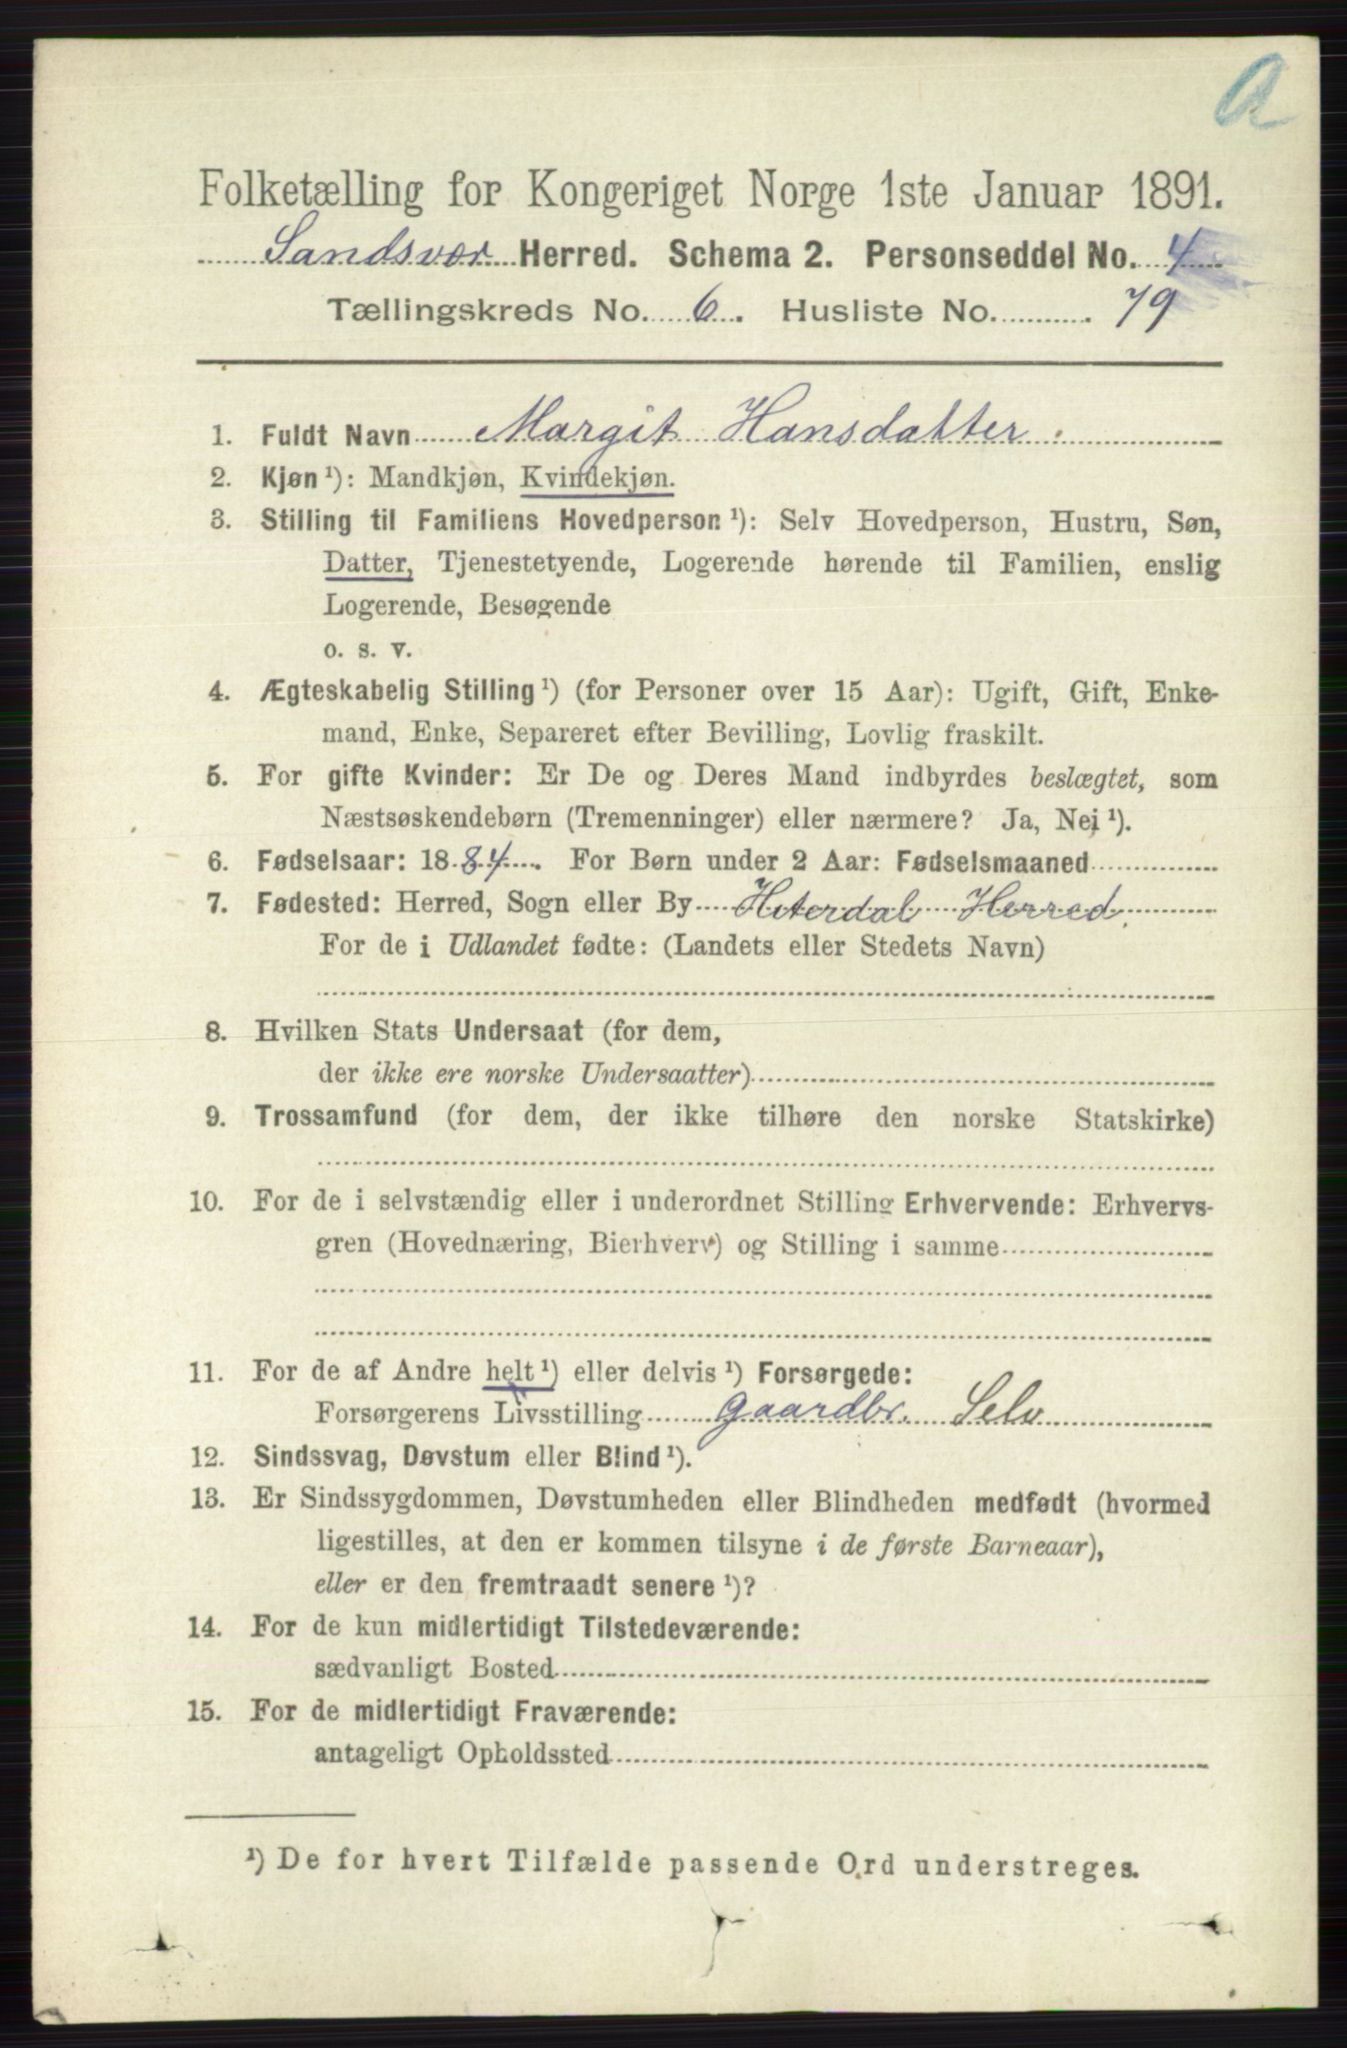 a
Folketælling for Kongeriget Norge 1ste Januar 1891.
Sandsvær Herred. Schema 2. Personseddel No. 4
Tællingskreds No. 6. Husliste No. 79
1. Fuldt Navn Margit Hansdatter
2. Kjøn ¹): Mandkjøn, Kvindekjøn.
3. Stilling til Familiens Hovedperson ¹): Selv Hovedperson, Hustru, Søn,
Datter, Tjenestetyende, Logerende hørende til Familien, enslig
Logerende, Besøgende
o. s. v.
4. Ægteskabelig Stilling ¹) (for Personer over 15 Aar): Ugift, Gift, Enke-
mand, Enke, Separeret efter Bevilling, Lovlig fraskilt.
5. For gifte Kvinder: Er De og Deres Mand indbyrdes beslægtet, som
Næstsøskendebørn (Tremenninger) eller nærmere? Ja, Nei ¹).
6. Fødselsaar: 1884. For Børn under 2 Aar: Fødselsmaaned
7. Fødested: Herred, Sogn eller By Hiterdal Herred.
For de i Udlandet fødte: (Landets eller Stedets Navn)
8. Hvilken Stats Undersaat (for dem,
der ikke ere norske Undersaatter)
9. Trossamfund (for dem, der ikke tilhøre den norske Statskirke)
10. For de i selvstændig eller i underordnet Stilling Erhvervende: Erhvervs-
gren (Hovednæring, Bierhverv) og Stilling i samme
11. For de af Andre helt ¹) eller delvis ¹) Forsørgede:
Forsørgerens Livsstilling Gaardbr. Selv
12. Sindssvag, Døvstum eller Blind ¹).
13. Er Sindssygdommen, Døvstumheden eller Blindheden medfødt (hvormed
ligestilles, at den er kommen tilsyne i de første Barneaar),
eller er den fremtraadt senere ¹)?
14. For de kun midlertidigt Tilstedeværende:
sædvanligt Bosted
15. For de midlertidigt Fraværende:
antageligt Opholdssted
¹) De for hvert Tilfælde passende Ord understreges.